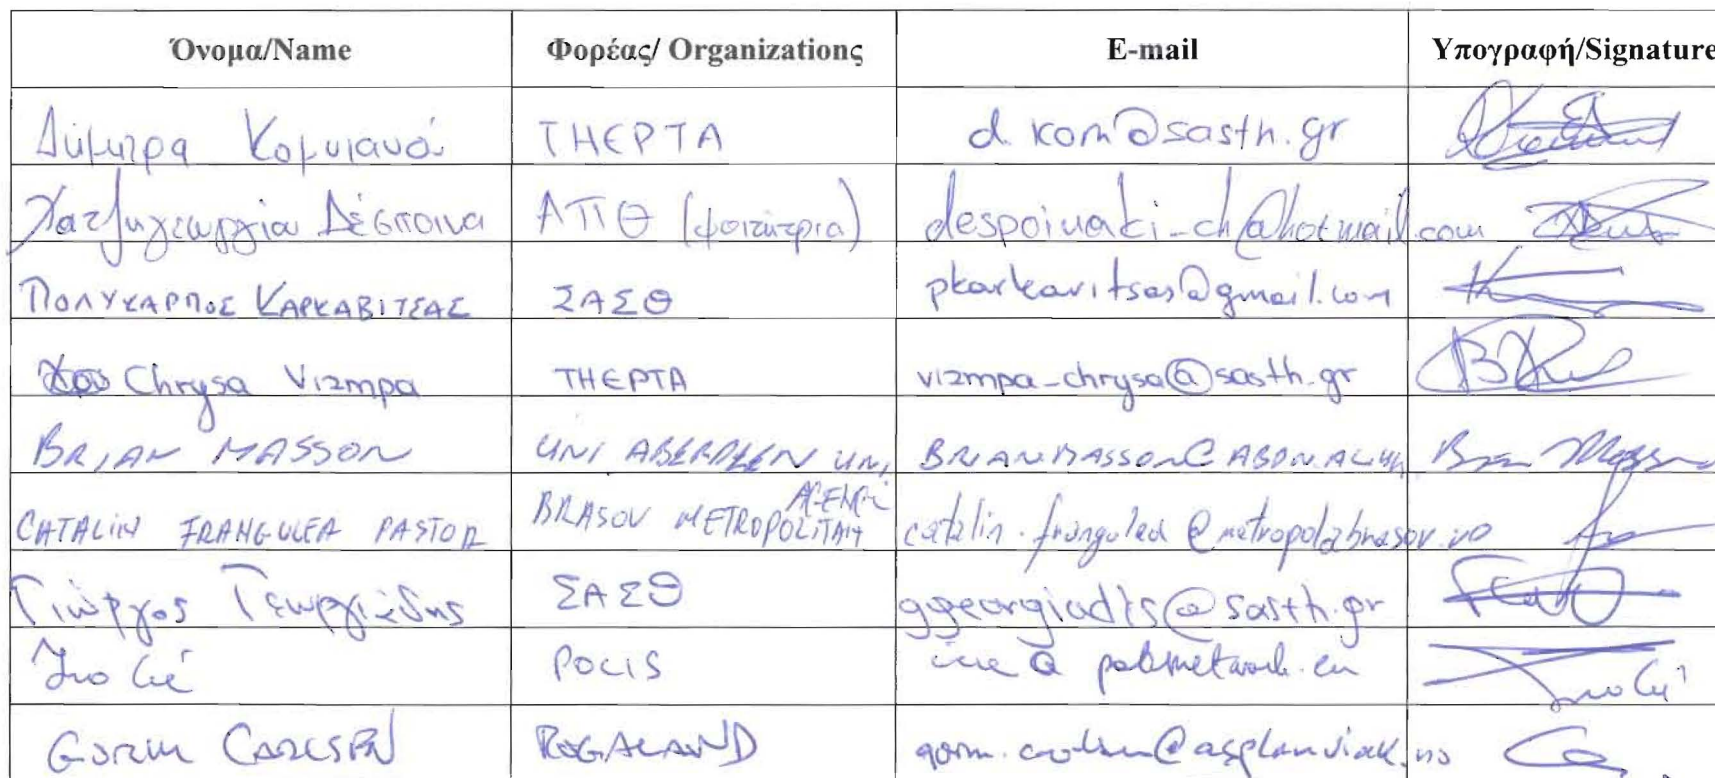 Όνομα/Name Φορέας/ Organizations E-mail Υπογραφή/Signature
Δήμητρα Κομνιανού THEPTA d.kom@sasth.gr
Χατζηγεωργίου Δέσποινα ΑΠΘ (φοιτήτρια) despoinaki_ch@hotmail.com
ΠΟΛΥΚΑΡΠΟΣ ΚΑΡΚΑΒΙΤΣΑΣ ΣΑΣΘ pkarkavitsas@gmail.com
Chrysa Vizmpa THEPTA vizmpa-chrysa@sasth.gr
BRIAN MASSON UNI ABERDEEN UNI
CATALIN FRANGULEA PASTOR BRASOV METROPOLITAN catalin.frangulea@metropolabrasov.ro
Γιώργος Γεωργιάδης ΣΑΣΘ ggeorgiadis@sasth.gr
POLIS
GORM CARLSEN ROGALAND